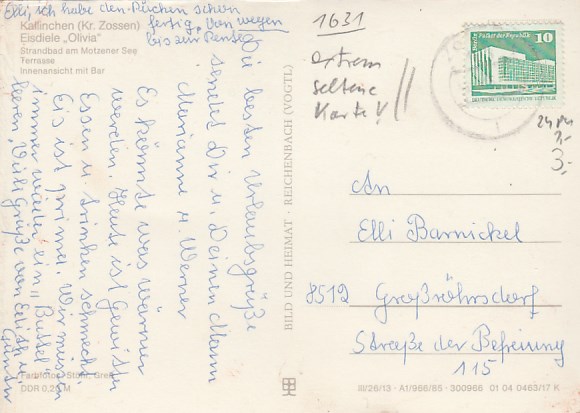 Elli, ich habe den Rücken schon
fertig. Von wegen
bis zur Rente
Kallinchen (Kr. Zossen)
Eisdiele „Olivia“
Strandbad am Motzener See
Terrasse
Innenansicht mit Bar
Die besten Urlaubsgrüße
sendet Dir u. Deinem Mann
Marianne u. Werner
Es könnte was wärmer
werden. Heute ist Gewitter
Essen u. Trinken schmeckt.
Eis ist prima. Wir müssen
immer weiter ein „Bussel“
Viele Grüße von Edith u.
Günter
Farbfotos: Stöhr,
DDR 0,20 M
BILD UND HEIMAT · REICHENBACH (VOGTL)
1631
extrem
seltene
Karte!
Palast der Republik
10
DEUTSCHE DEMOKRATISCHE REPUBLIK
3,-
An
Elli Barnickel
8512 Großröhrsdorf
Straße der Befreiung
115
III/26/13 · A1/986/85 · 300966 01 04 0463/17 K